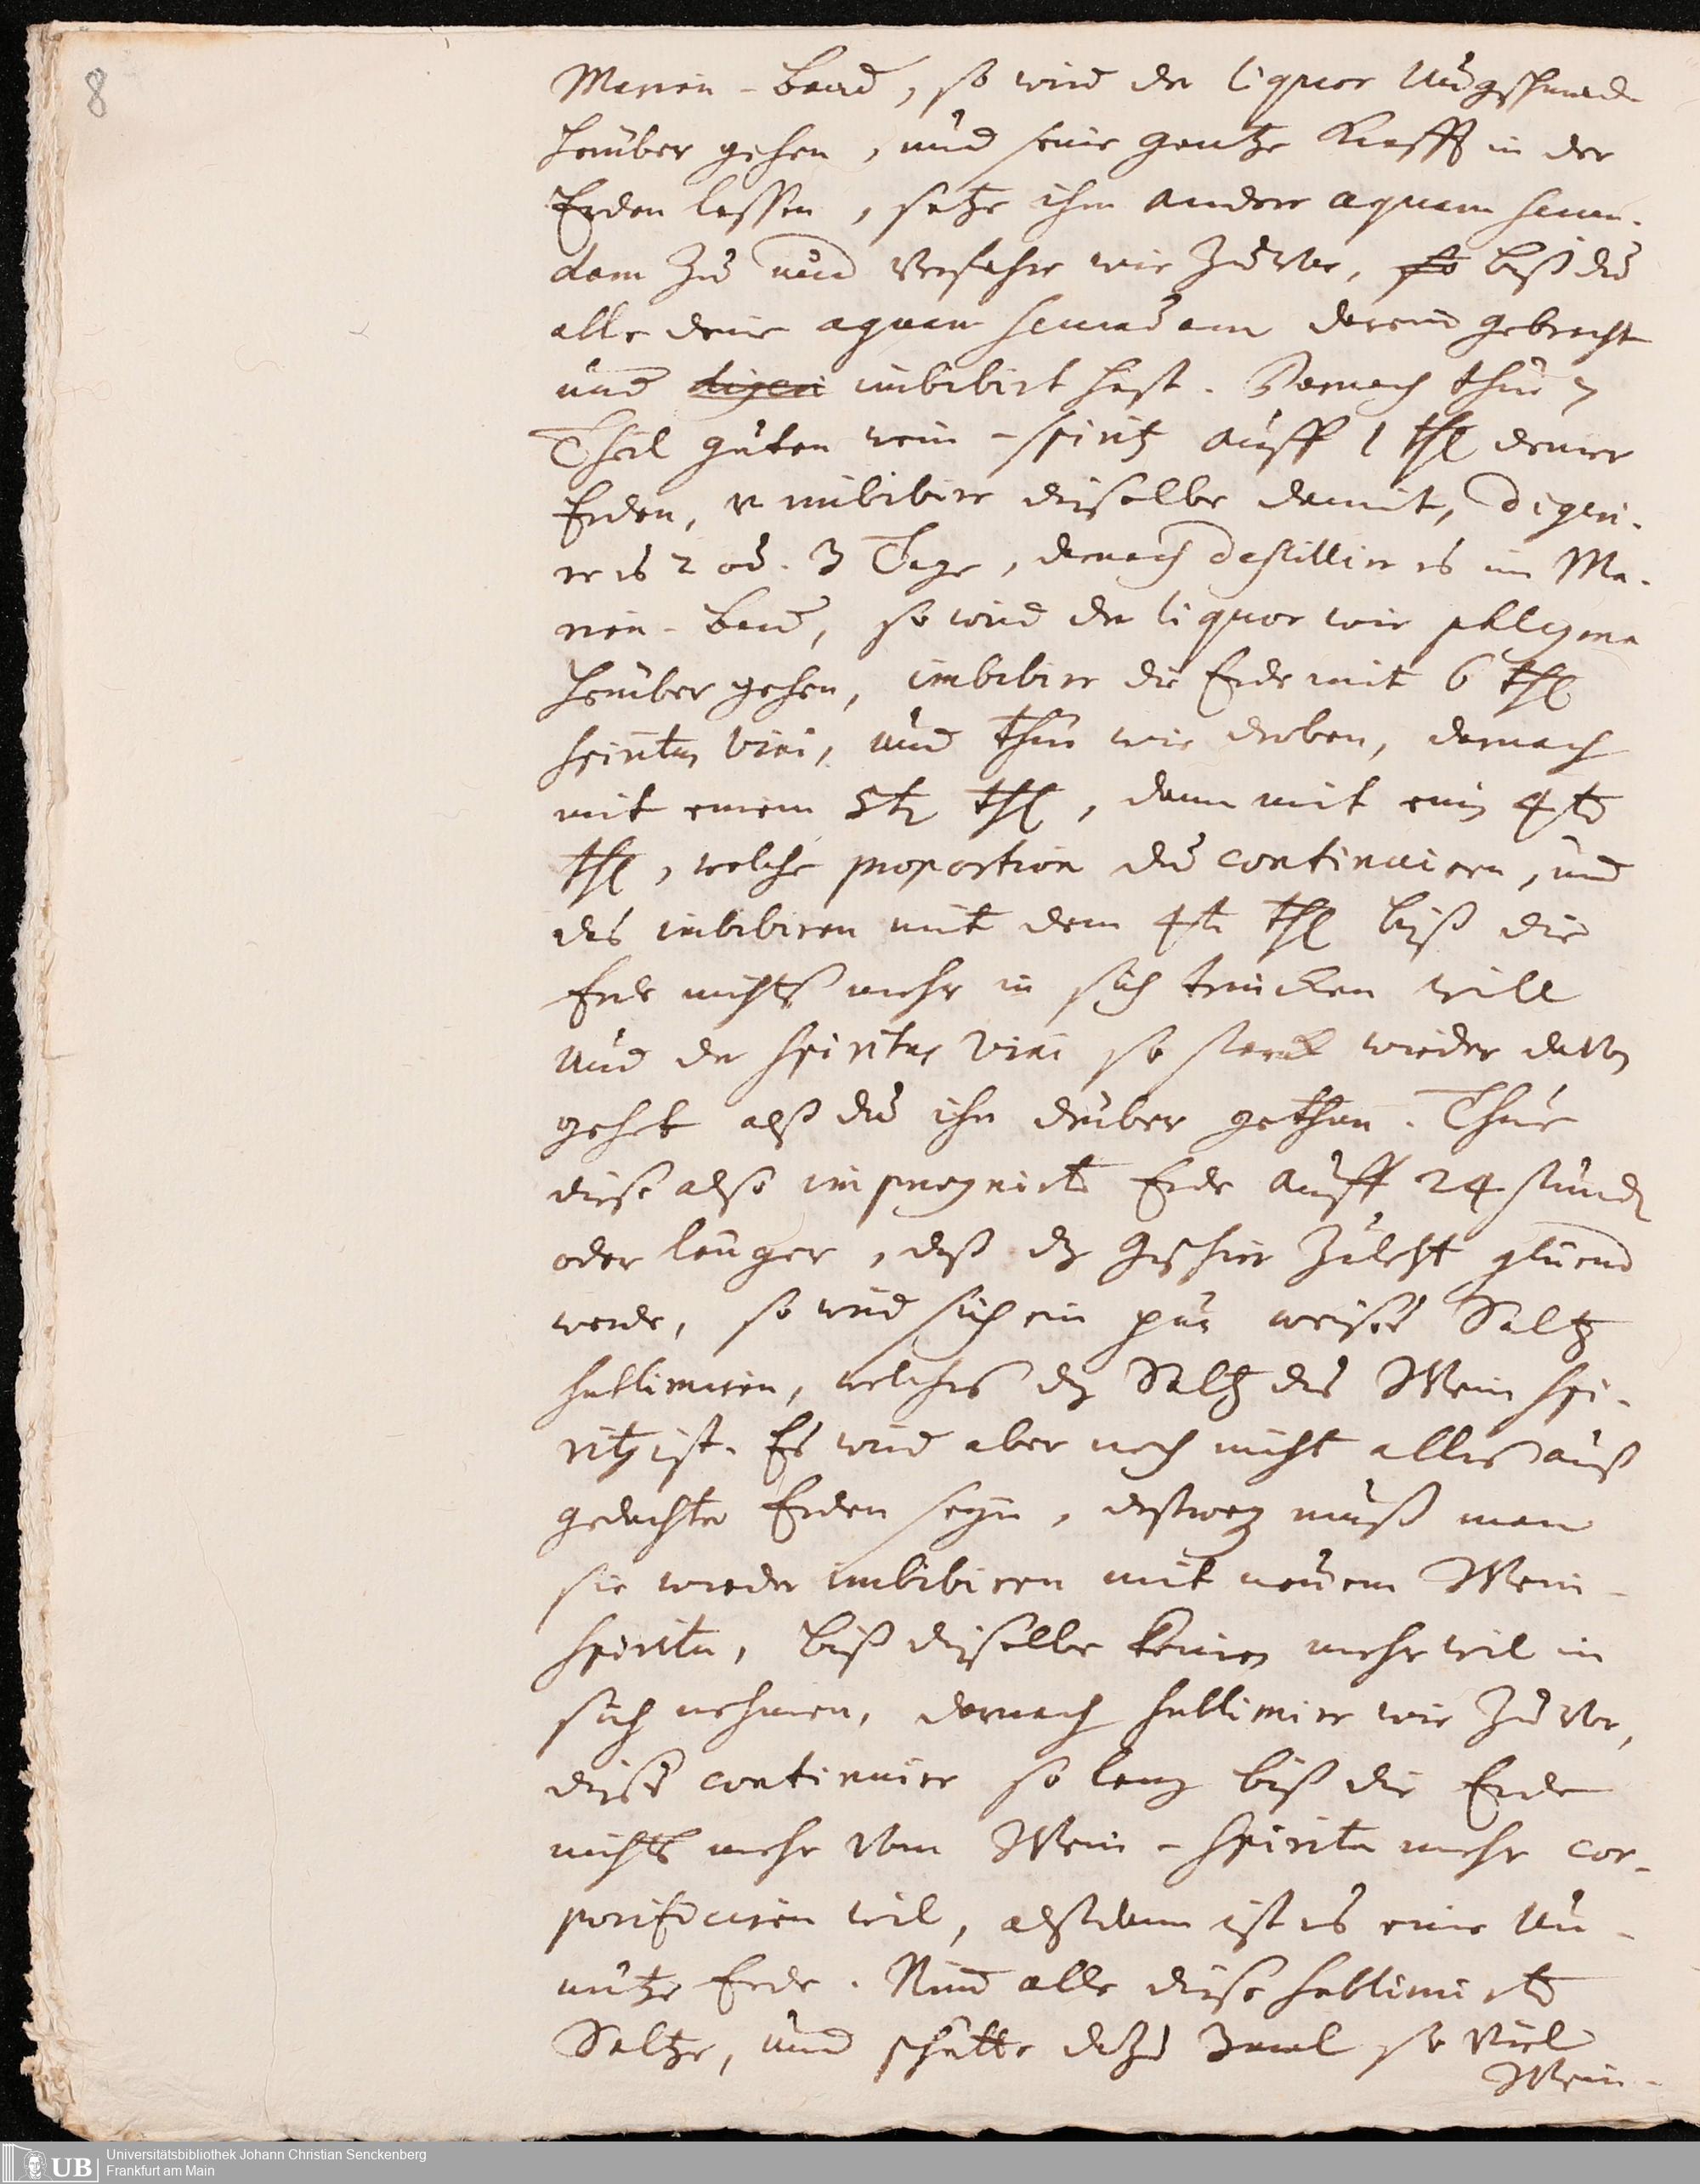 8
Marien-Baad, so wird der liquor Ungeschmack
herüber gehen, und seine gantze Krafft in der
Erden lassen, setze ihm andere aquam secun-
dam zu und verfahre wie zuvor, so biß du
alle deine aquam secundam darein gebracht
und digeri imbibirt hast. Darnach thue 7
Theil guten wein-spirits auff 1 thl deiner
Erden, v imbibire dieselbe damit, digeri-
re es 2 od. 3 Tage, darnach destillire es im Ma-
rien-Baad, so wird der liquor wie phlegma
herüber gehen, imbibire die Erde mit 6 thl
spiritus vini, und thue wie droben, darnach
mit einem 5ten thl, dann mit ein 4ten
thl, welche proportion du continuiren, und
das imbibiren mit dem 4ten thl biß die
Erde nichts mehr in sich trincken will
und der spiritus vini so starck wieder davon
gehet alß du ihn drüber gethan. Thue
diese also impregnirte Erde auff 24 stund
oder länger, daß dz geschirr zuletzt glüend
werde, so wird sich ein pur weises Saltz
sublimiren, welches dz Saltz des Wein spi-
rits ist. Es wird aber noch nicht alles auß
gedachter Erden seyn, destweg muß man
sie wieder imbibiren mit neuem Wein-
spiritu, biß dieselbe keinen mehr wil in
sich nehmen, darnach sublimire wie zuvor,
dieses continuire so lang biß die Erde
nichts mehr vom Wein-spiritu mehr cor-
porificiren wil, alßdann ist es eine un-
nütze Erde. Nimb alle diese sublimirte
Saltze, und schütte dazu 3 mal so viel
Wein-
UB
Universitätsbibliothek Johann Christian Senckenberg
Frankfurt am Main